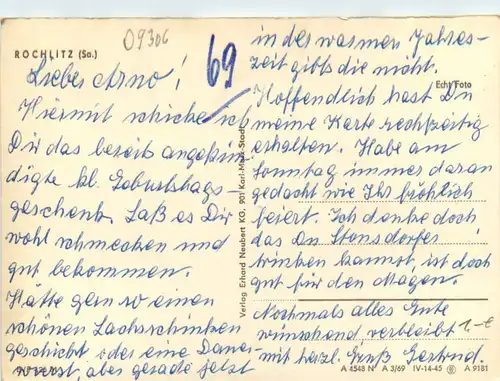 09306
69
ROCHLITZ (Sa.)
Lieber Arno!
Hiermit schicke ich
Dir das bereits angekün-
digte kl. Geburtstags-
geschenk. Laß es Dir
wohl schmecken und
gut bekommen.
Hätte gern so einen
schönen Lachsschinken
geschickt oder eine Daue-
rwurst, aber gerade jetzt
in der warmen Jahres-
zeit gibts die nicht.
Echt Foto
Hoffentlich hast Du
meine Karte rechtzeitig
erhalten. Habe am
Sonntag immer daran
gedacht wie Ihr fröhlich
feiert. Ich denke doch
das Du Stonsdorfer
trinken kannst, ist doch
gut für den Magen.
Nochmals alles Gute
wünschend verbleibt
1.-€
mit herzl. Gruß Gertrud.
Verlag Erhard Neubert KG, 901 Karl-Marx-Stadt
A 4548 N A 3/69 IV-14-45 A 9181